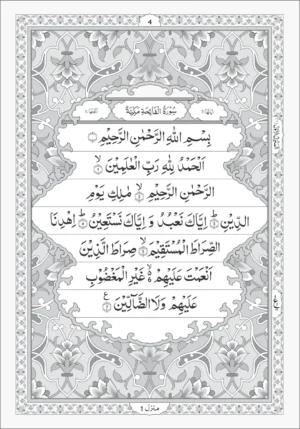 4
سُوْرَةُ الْفَاتِحَةِ مَكِّيَّةٌ
بِسْمِ اللّٰهِ الرَّحْمٰنِ الرَّحِيْمِ
اَلْحَمْدُ لِلّٰهِ رَبِّ الْعٰلَمِيْنَ
الرَّحْمٰنِ الرَّحِيْمِ مٰلِكِ يَوْمِ
الدِّيْنِ اِيَّاكَ نَعْبُدُ وَ اِيَّاكَ نَسْتَعِيْنُ اِهْدِنَا
الصِّرَاطَ الْمُسْتَقِيْمَ صِرَاطَ الَّذِيْنَ
اَنْعَمْتَ عَلَيْهِمْ غَيْرِ الْمَغْضُوْبِ
عَلَيْهِمْ وَلَا الضَّآلِّيْنَ
منزل 1